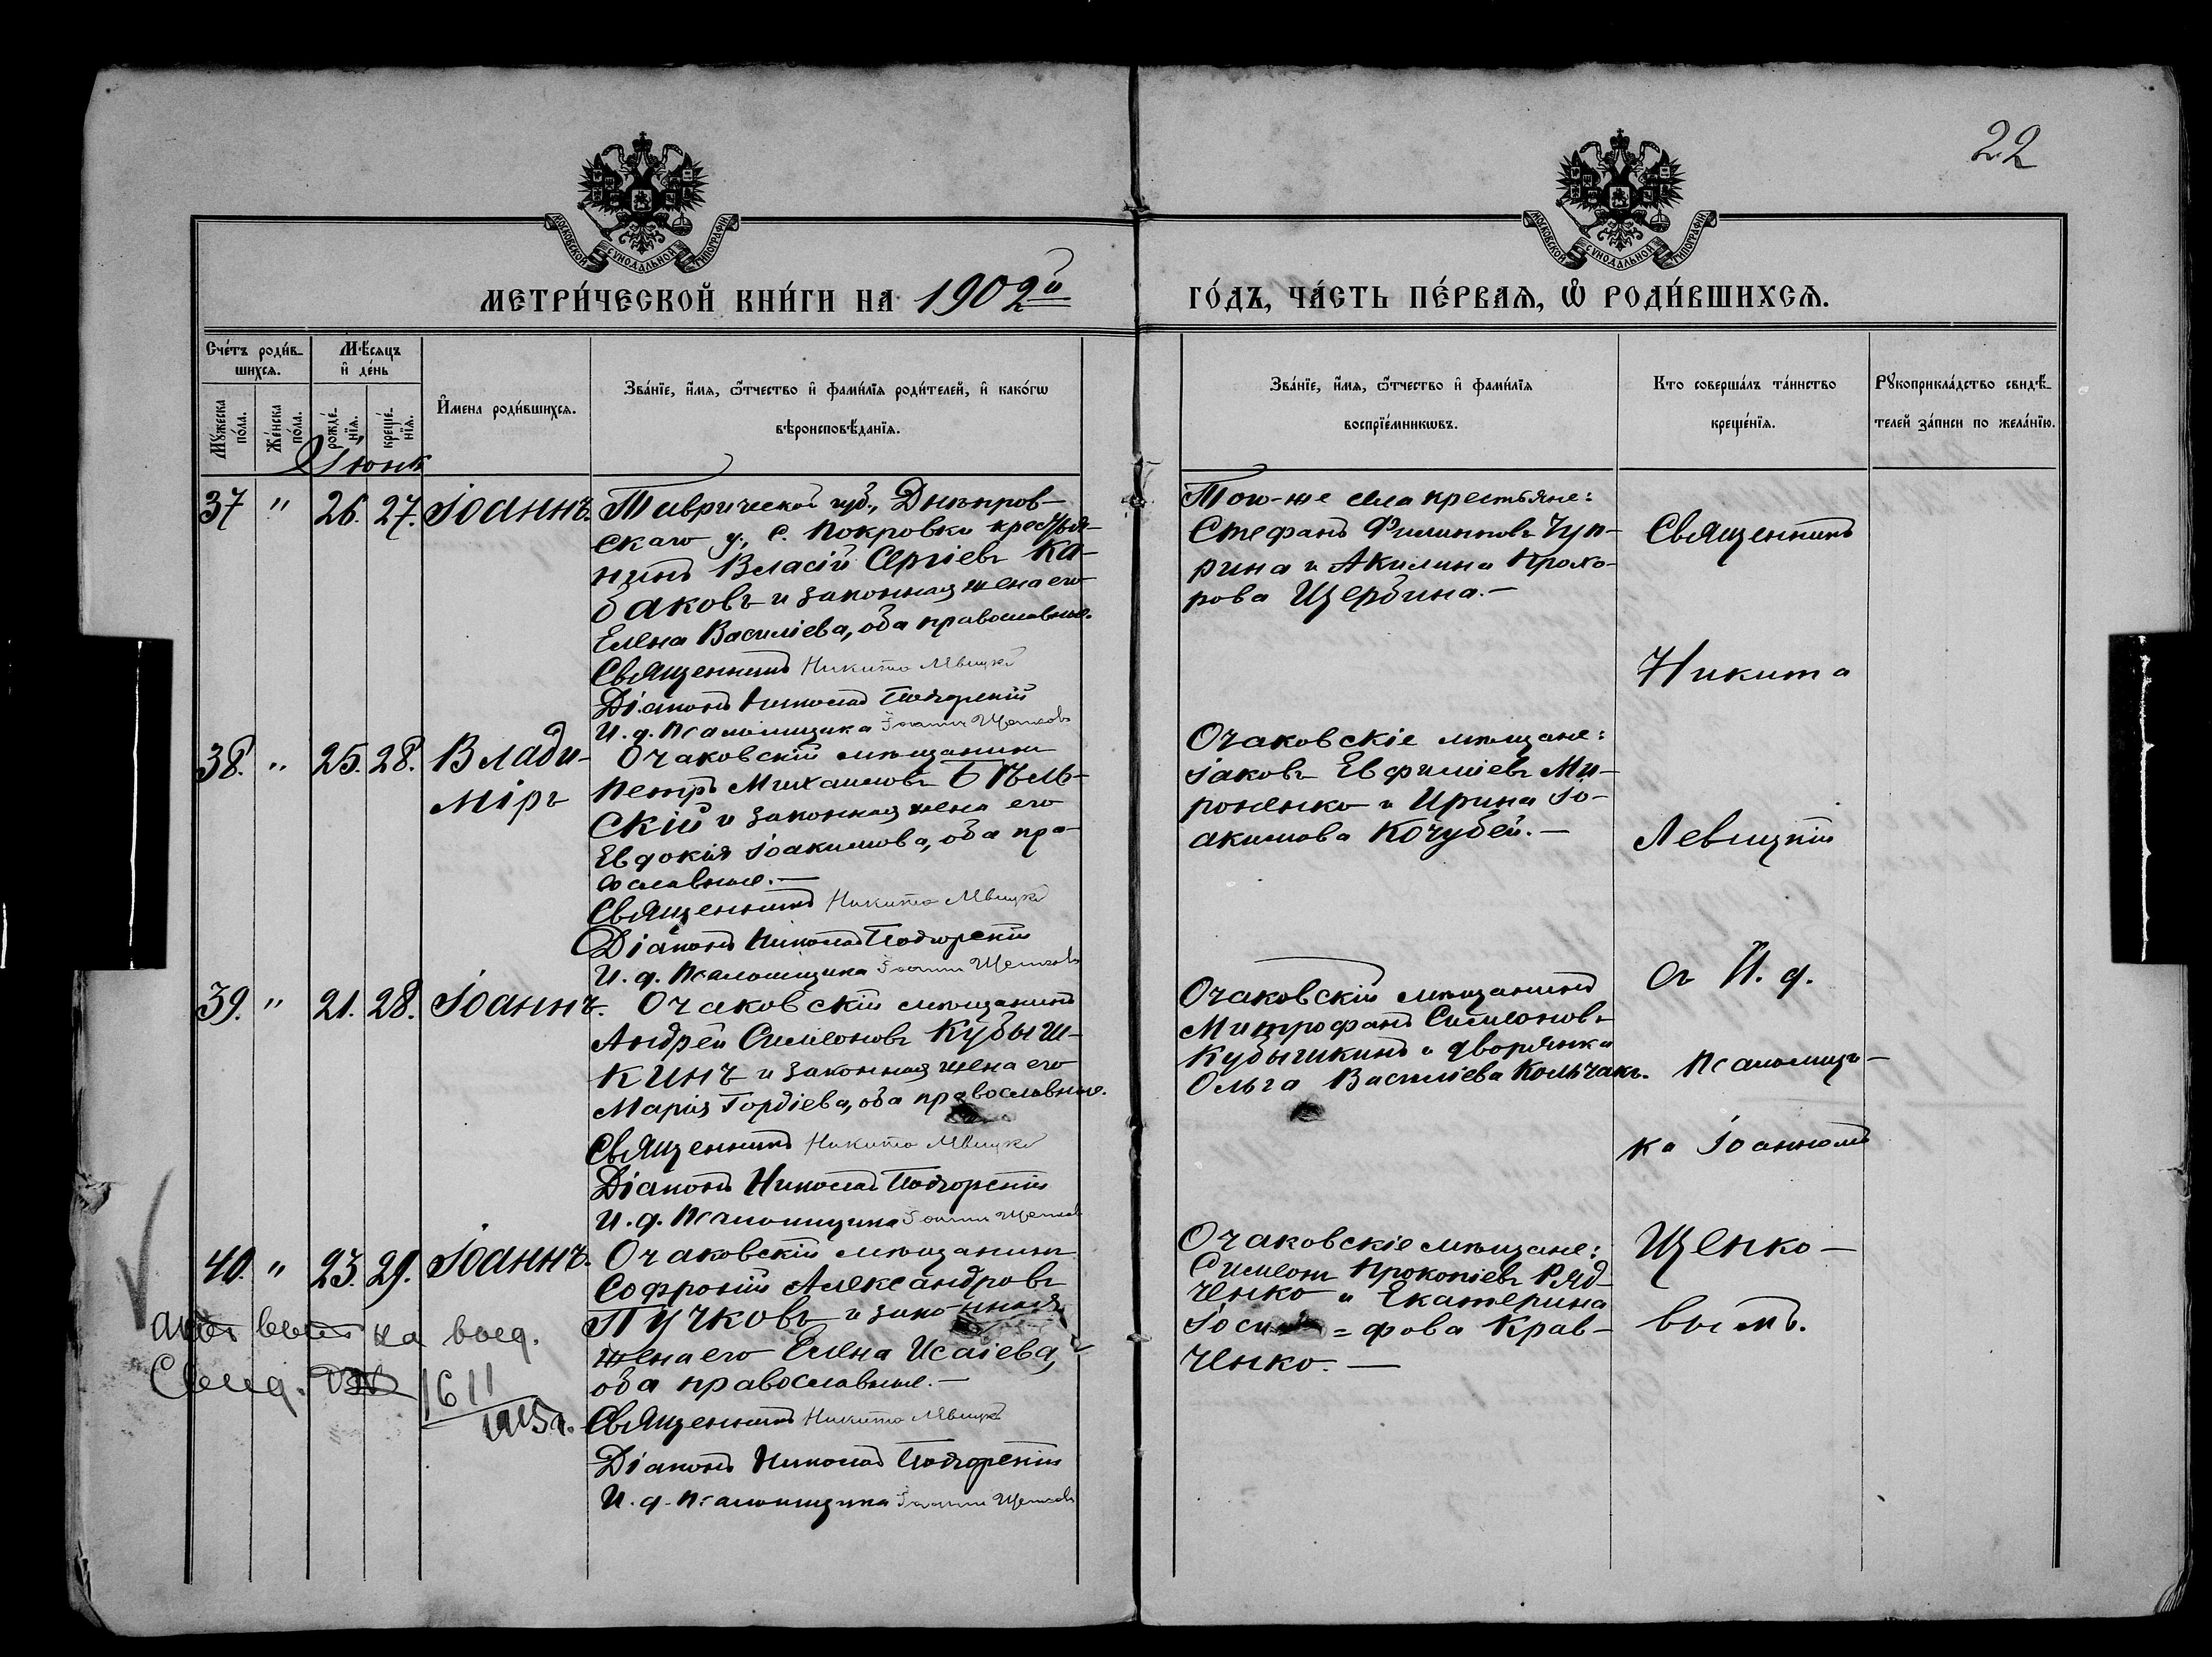 22
МОСКОВСКОЙ СѴНОДАЛЬНОЙ ТИПОГРАФІИ
МОСКОВСКОЙ СѴНОДАЛЬНОЙ ТИПОГРАФІИ
МЕТРИ́ЧЕСКОЙ КНИ́ГИ НА 1902й
ГО́ДЪ, ЧА́СТЬ ПЕ́РВАѦ, Ѿ РОДИ́ВШИХСѦ.
Сче́тъ роди́в-
шихсѧ.
Мѣ́сѧцъ
и҆ де́нь
Мꙋ́жеска
по́ла.
Же́нска
по́ла.
рожде́-
нїѧ.
креще́-
нїѧ.
И҆мена роди́вшихсѧ.
Зва́нїе, и҆́мѧ, ѻ҆́тчество и҆ фами́лїѧ роди́телей, и҆ како́гѡ
вѣроисповѣ́данїѧ.
Зва́нїе, и҆́мѧ, ѻ҆́тчество и҆ фами́лїѧ
воспрїе́мникѡвъ.
Кто соверша́лъ та́инство
креще́нїѧ.
Рꙋкоприкла́дство свидѣ́-
телей за́писи по жела́нїю.
Іюнь
37 " 26. 27. Іоаннъ.
Таврической губ., Днѣпров-
скаго у., с. Покровки крестья-
нинъ Власій Сергіевъ Ка-
баковъ и законная жена его
Елена Василіева, оба православные.
Священникъ Никита Левицкій
Діаконъ Николай Подгорскій
И. д. Псаломщика Іоаннъ Щенковъ
Того-же села крестьяне:
Стефанъ Филипповъ Чуп-
рина и Акилина Прохо-
рова Щербина.—
38. " 25. 28. Влади-
міръ
Очаковскій мѣщанинъ
Петръ Михаиловъ Бѣль-
скій и законная жена его
Евдокія Іоакимова, оба пра-
вославные.—
Священникъ Никита Левицкій
Діаконъ Николай Подгорскій
И. д. Псаломщика Іоаннъ Щенковъ
Очаковскіе мѣщане:
Іаковъ Евфиміевъ Ми-
роненко и Ирина Іо-
акимова Кочубей.—
39. " 21. 28. Іоаннъ.
Очаковскій мѣщанинъ
Андрей Симеоновъ Кубыш-
кинъ и законная жена его
Марія Гордіева, оба православные.
Священникъ Никита Левицкій
Діаконъ Николай Подгорскій
И. д. Псаломщика Іоаннъ Щенковъ
Очаковскій мѣщанинъ
Митрофанъ Симеоновъ
Кубышкинъ и дворянка
Ольга Василіева Колчакъ.
40. " 23. 29. Іоаннъ.
Очаковскій мѣщанинъ
Софроній Александровъ
Пучковъ и законная
жена его Елена Исаіева,
оба православные.—
Священникъ Никита Левицкій
Діаконъ Николай Подгорскій
И. д. Псаломщика Іоаннъ Щенковъ
Очаковскіе мѣщане:
Симеонъ Прокопіевъ Ряд-
ченко и Екатерина
Іоси=фова Крав-
ченко.—
на
1611
1915 г.
Священникъ
Никита
Левицкій
съ И. д.
Псаломщи-
ка Іоанномъ
Щенко-
вымъ.